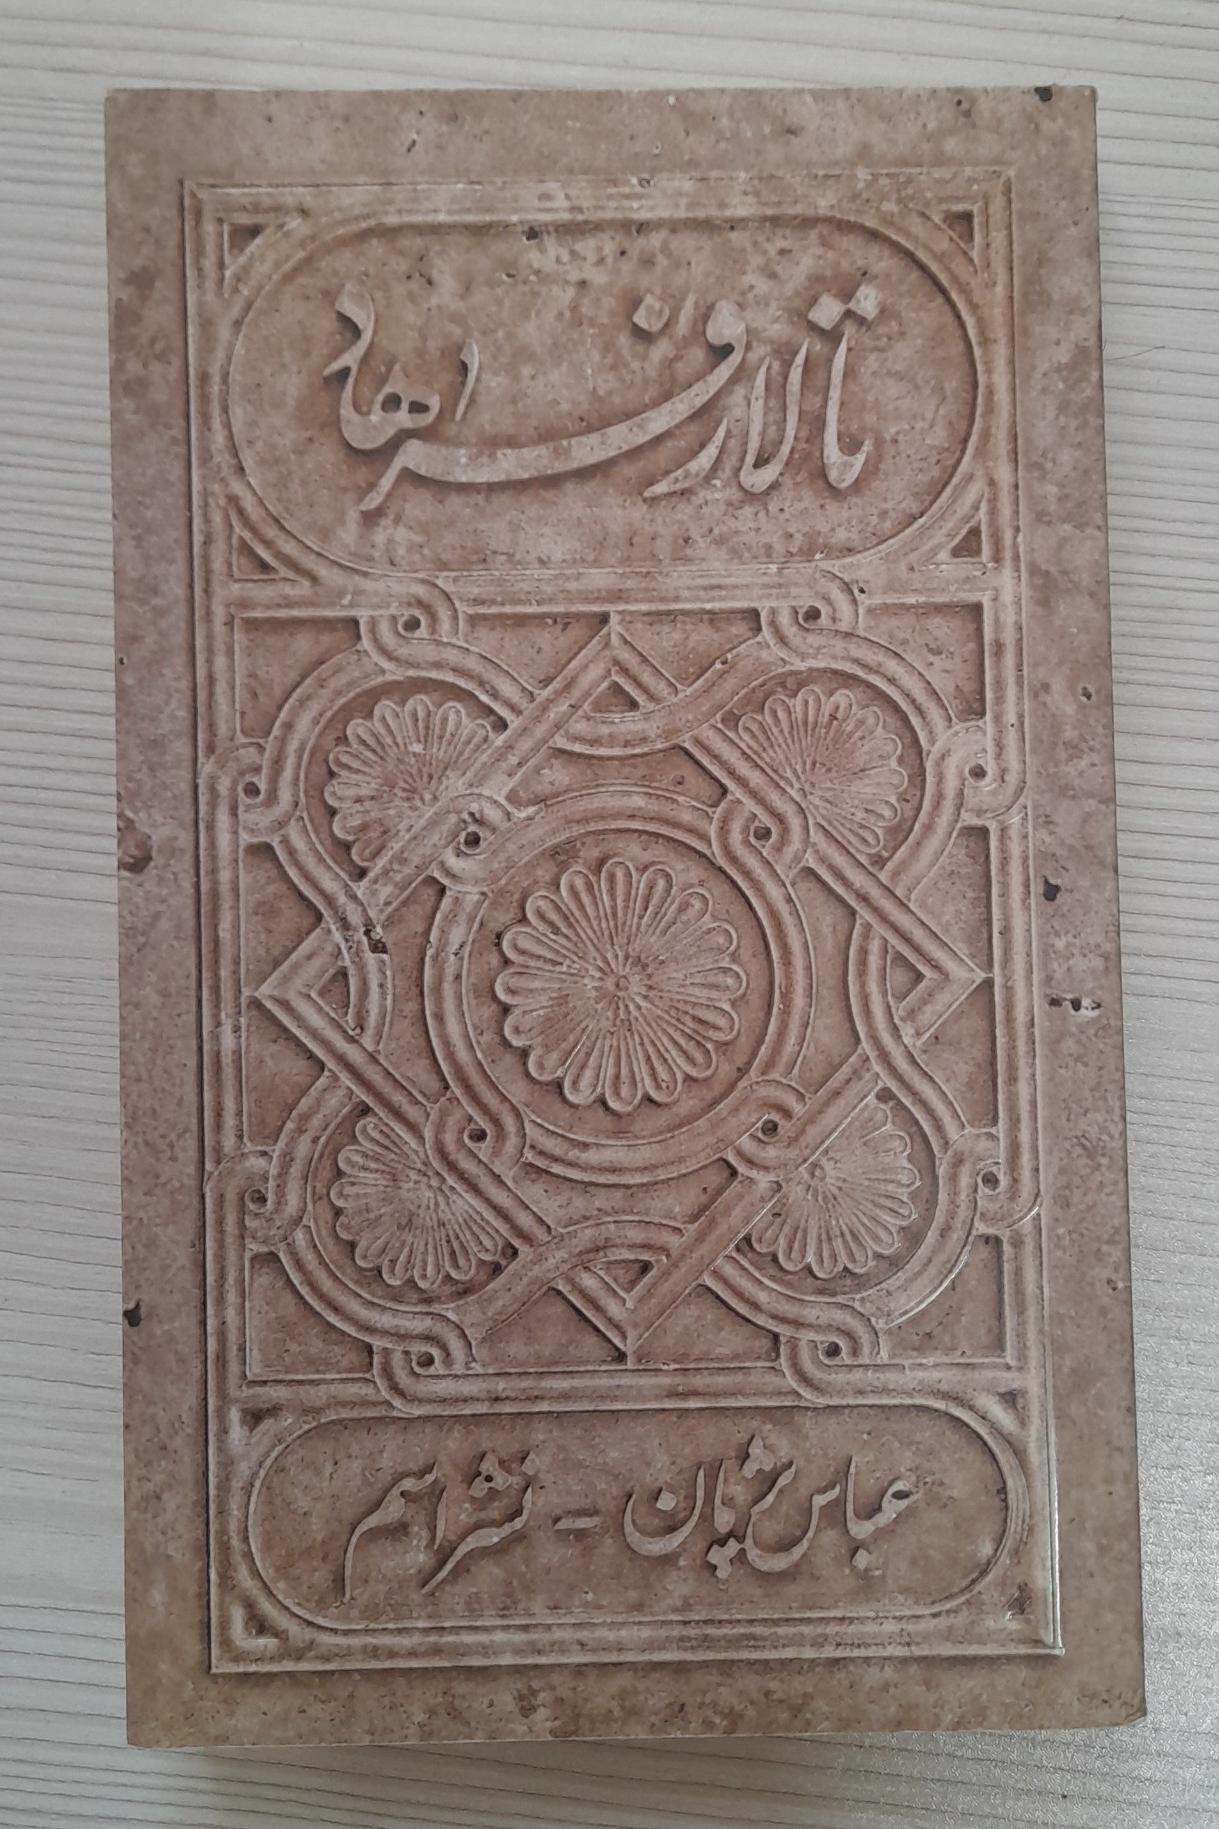 تالار فرهاد
عباس پژمان – نشر اسم